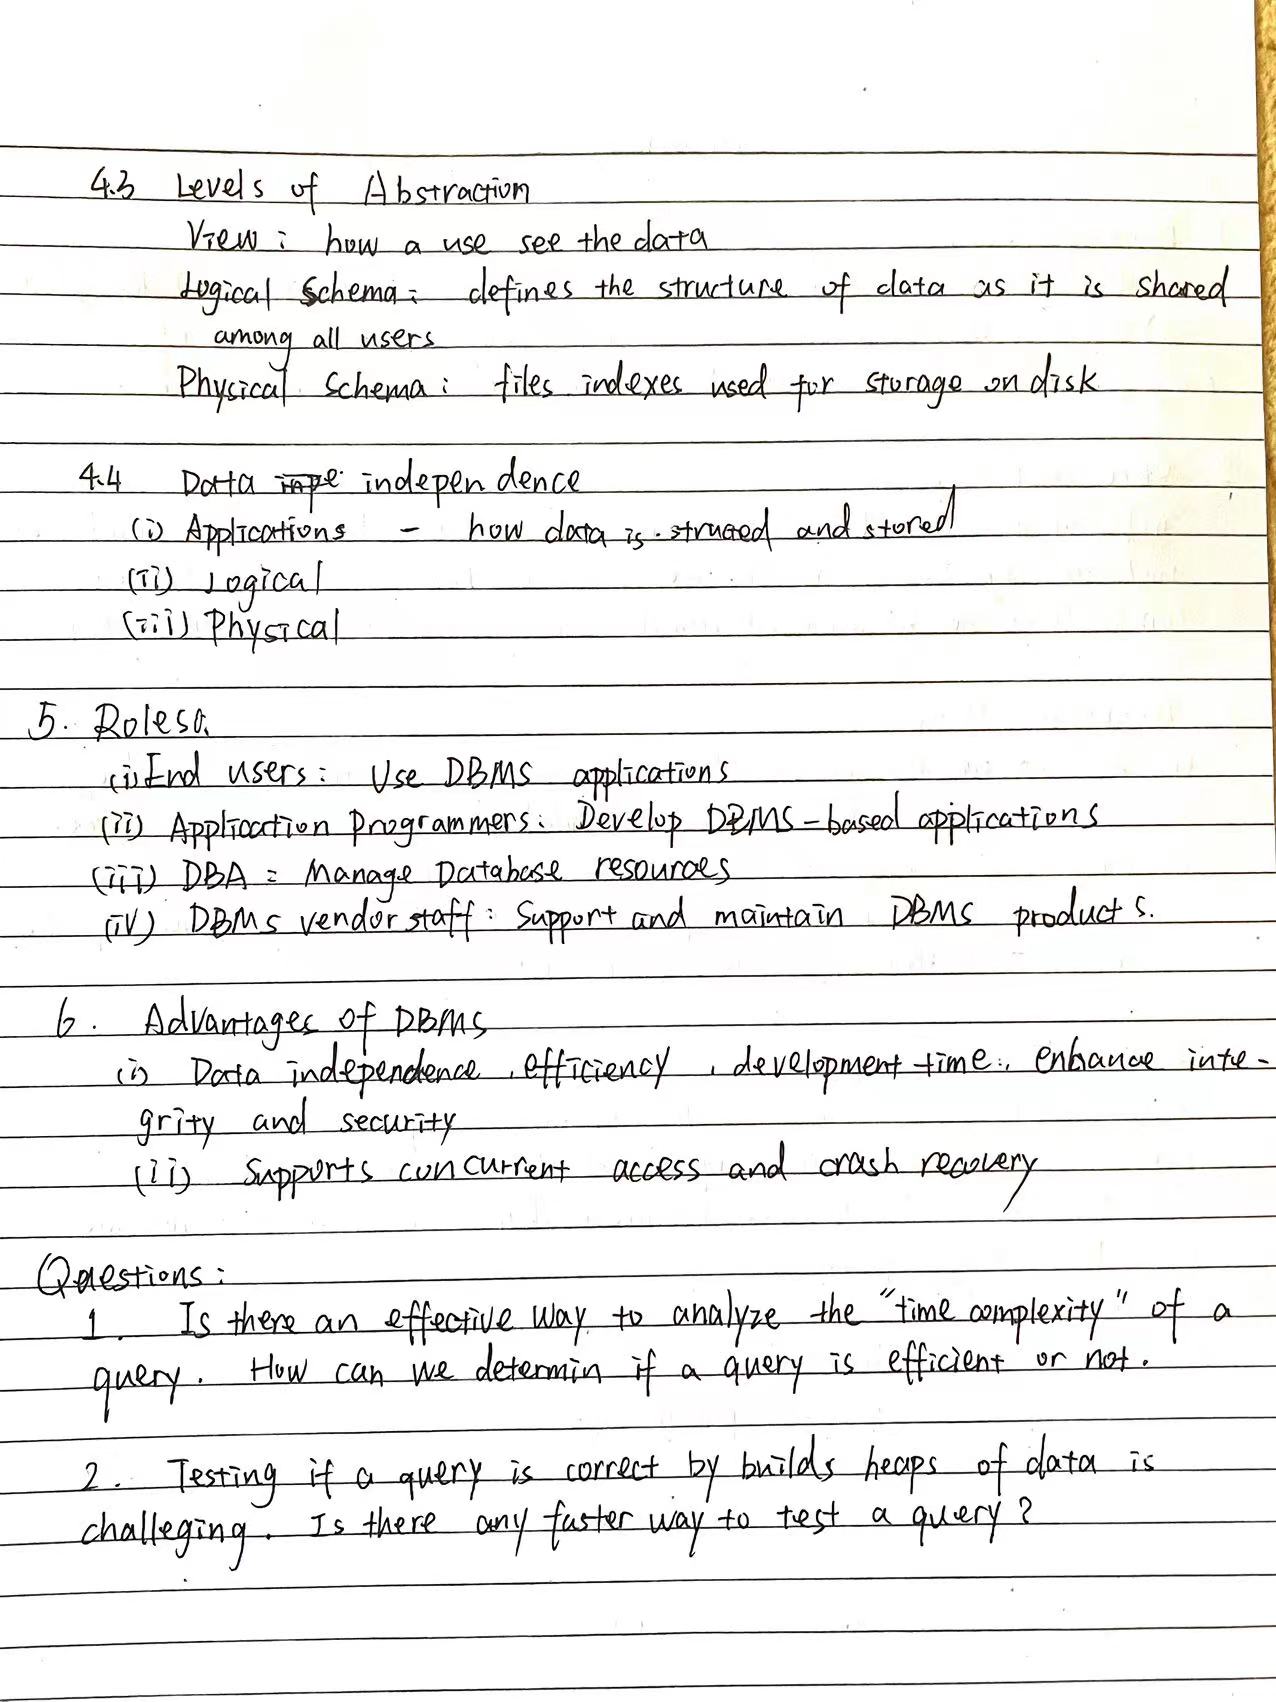 4.3 Levels of Abstraction
View: how a use see the data
Logical Schema: defines the structure of data as it is shared
among all users
Physical Schema: files indexes used for storage on disk
4.4 Data independence
(i) Applications - how data is struced and stored
(ii) Logical
(iii) Physical
5. Roles
(i) End users: Use DBMS applications
(ii) Application Programmers: Develop DBMS-based applications
(iii) DBA: Manage Database resources
(iv) DBMS vendor staff: Support and maintain DBMS products.
6. Advantages of DBMS
(i) Data independence, efficiency, development time, enhance inte-
grity and security
(ii) Supports concurrent access and crash recovery
Questions:
1. Is there an effective way to analyze the "time complexity" of a
query. How can we determin if a query is efficient or not.
2. Testing if a query is correct by builds heaps of data is
challeging. Is there any faster way to test a query?